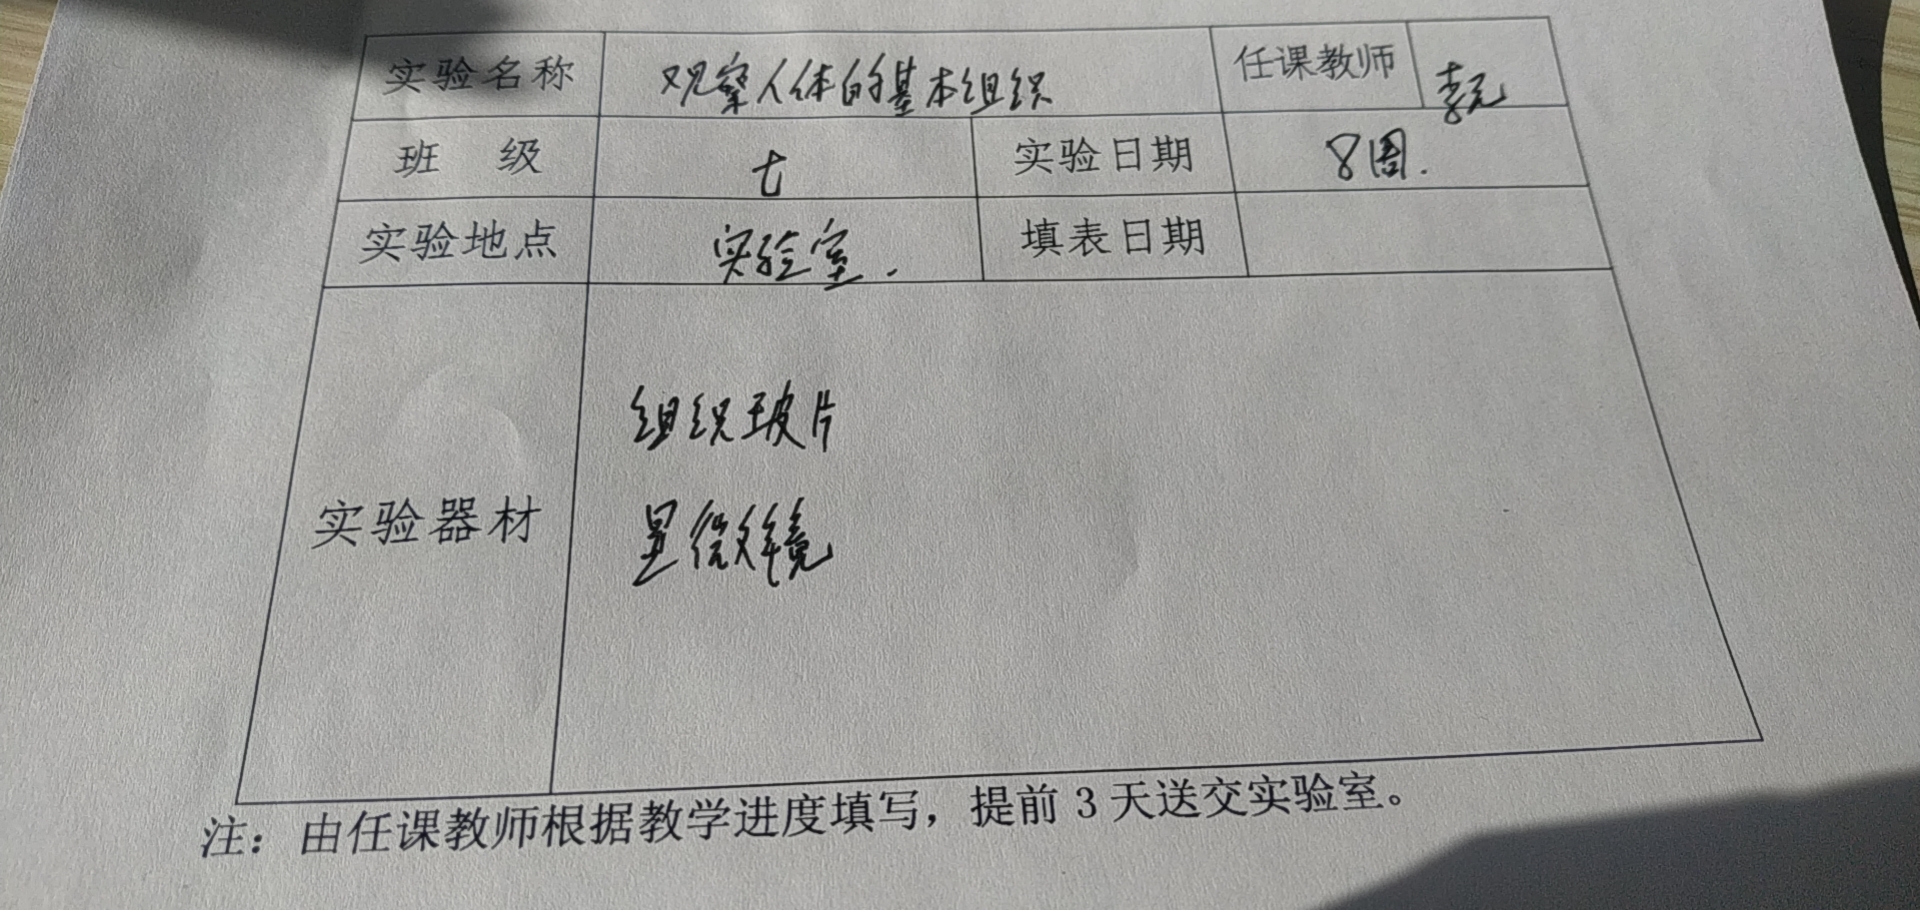 实验名称 观察人体的基本组织 任课教师
班 级 七 实验日期 8周.
实验地点 实验室. 填表日期
组织玻片
实验器材
显微镜
注：由任课教师根据教学进度填写，提前 3 天送交实验室。